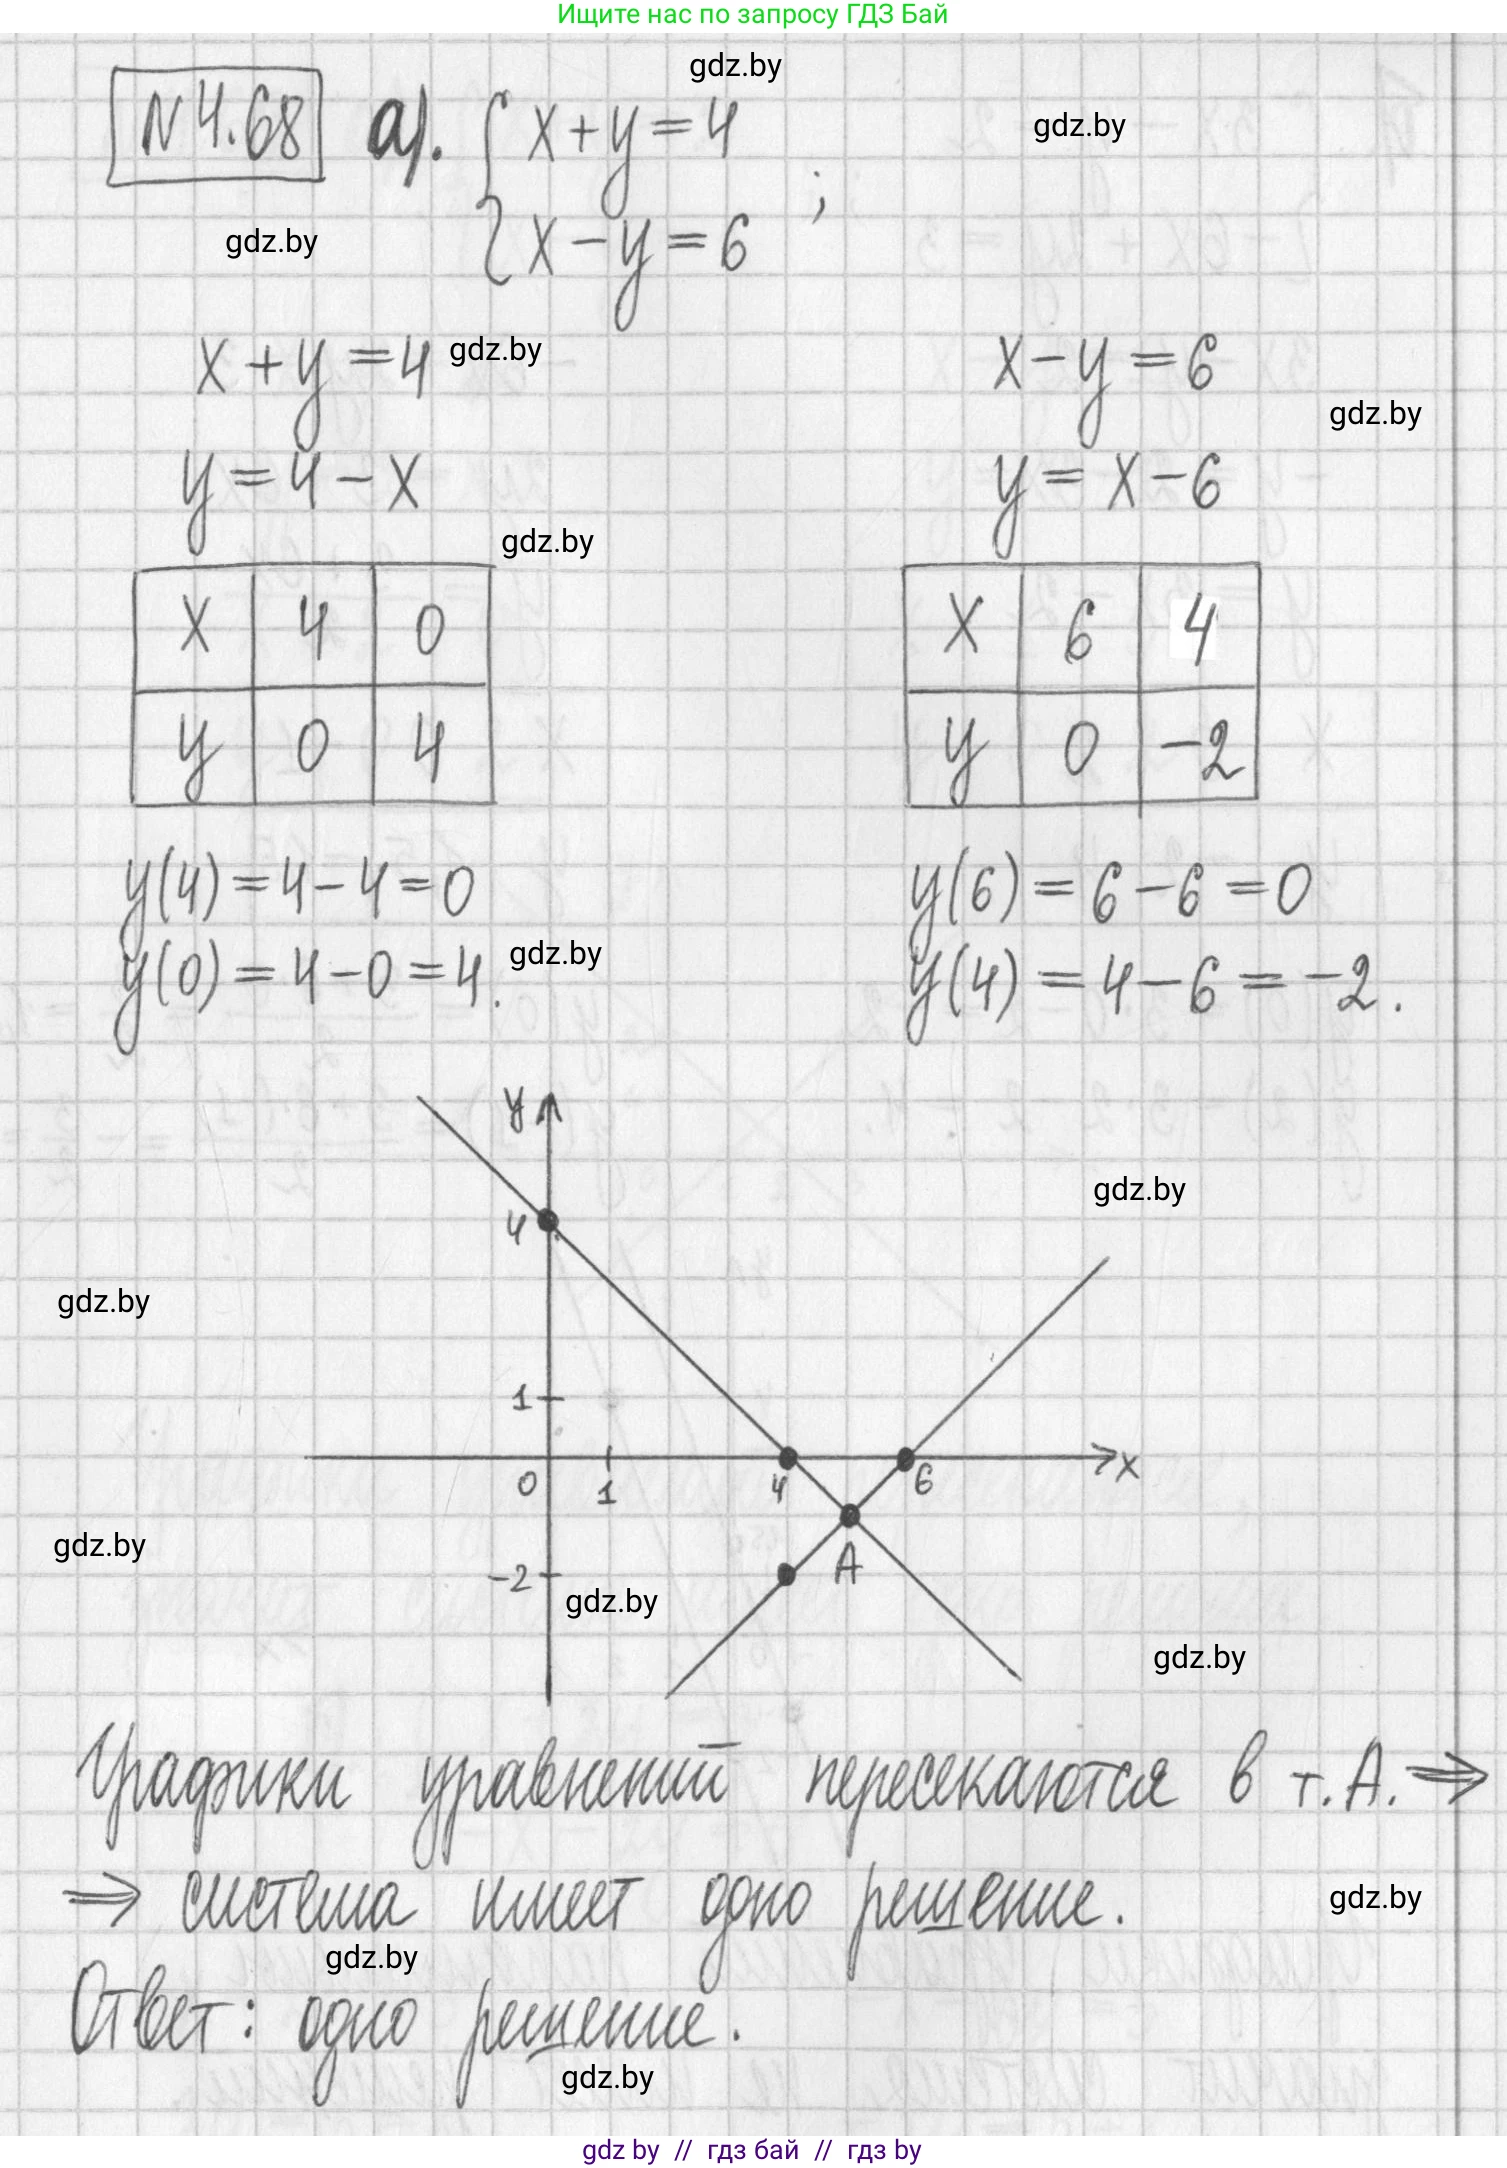 Ищите нас по запросу ГДЗ Бай
gdz.by
N 4.68 а). { x+y=4
gdz.by
{ x-y=6 ;
gdz.by
x+y=4 gdz.by x-y=6
gdz.by
y=4-x y=x-6
gdz.by
x 4 0 x 6 4
y 0 4 y 0 -2
y(4)=4-4=0 y(6)=6-6=0
y(0)=4-0=4. gdz.by y(4)=4-6=-2.
y
gdz.by
4
gdz.by
1
0 1 4 6 x
gdz.by
-2 A
gdz.by
gdz.by
Графики уравнений пересекаются в т. А. ⇒
⇒ система имеет одно решение. gdz.by
gdz.by
Ответ: одно решение.
gdz.by
gdz by // гдз бай // гдз by